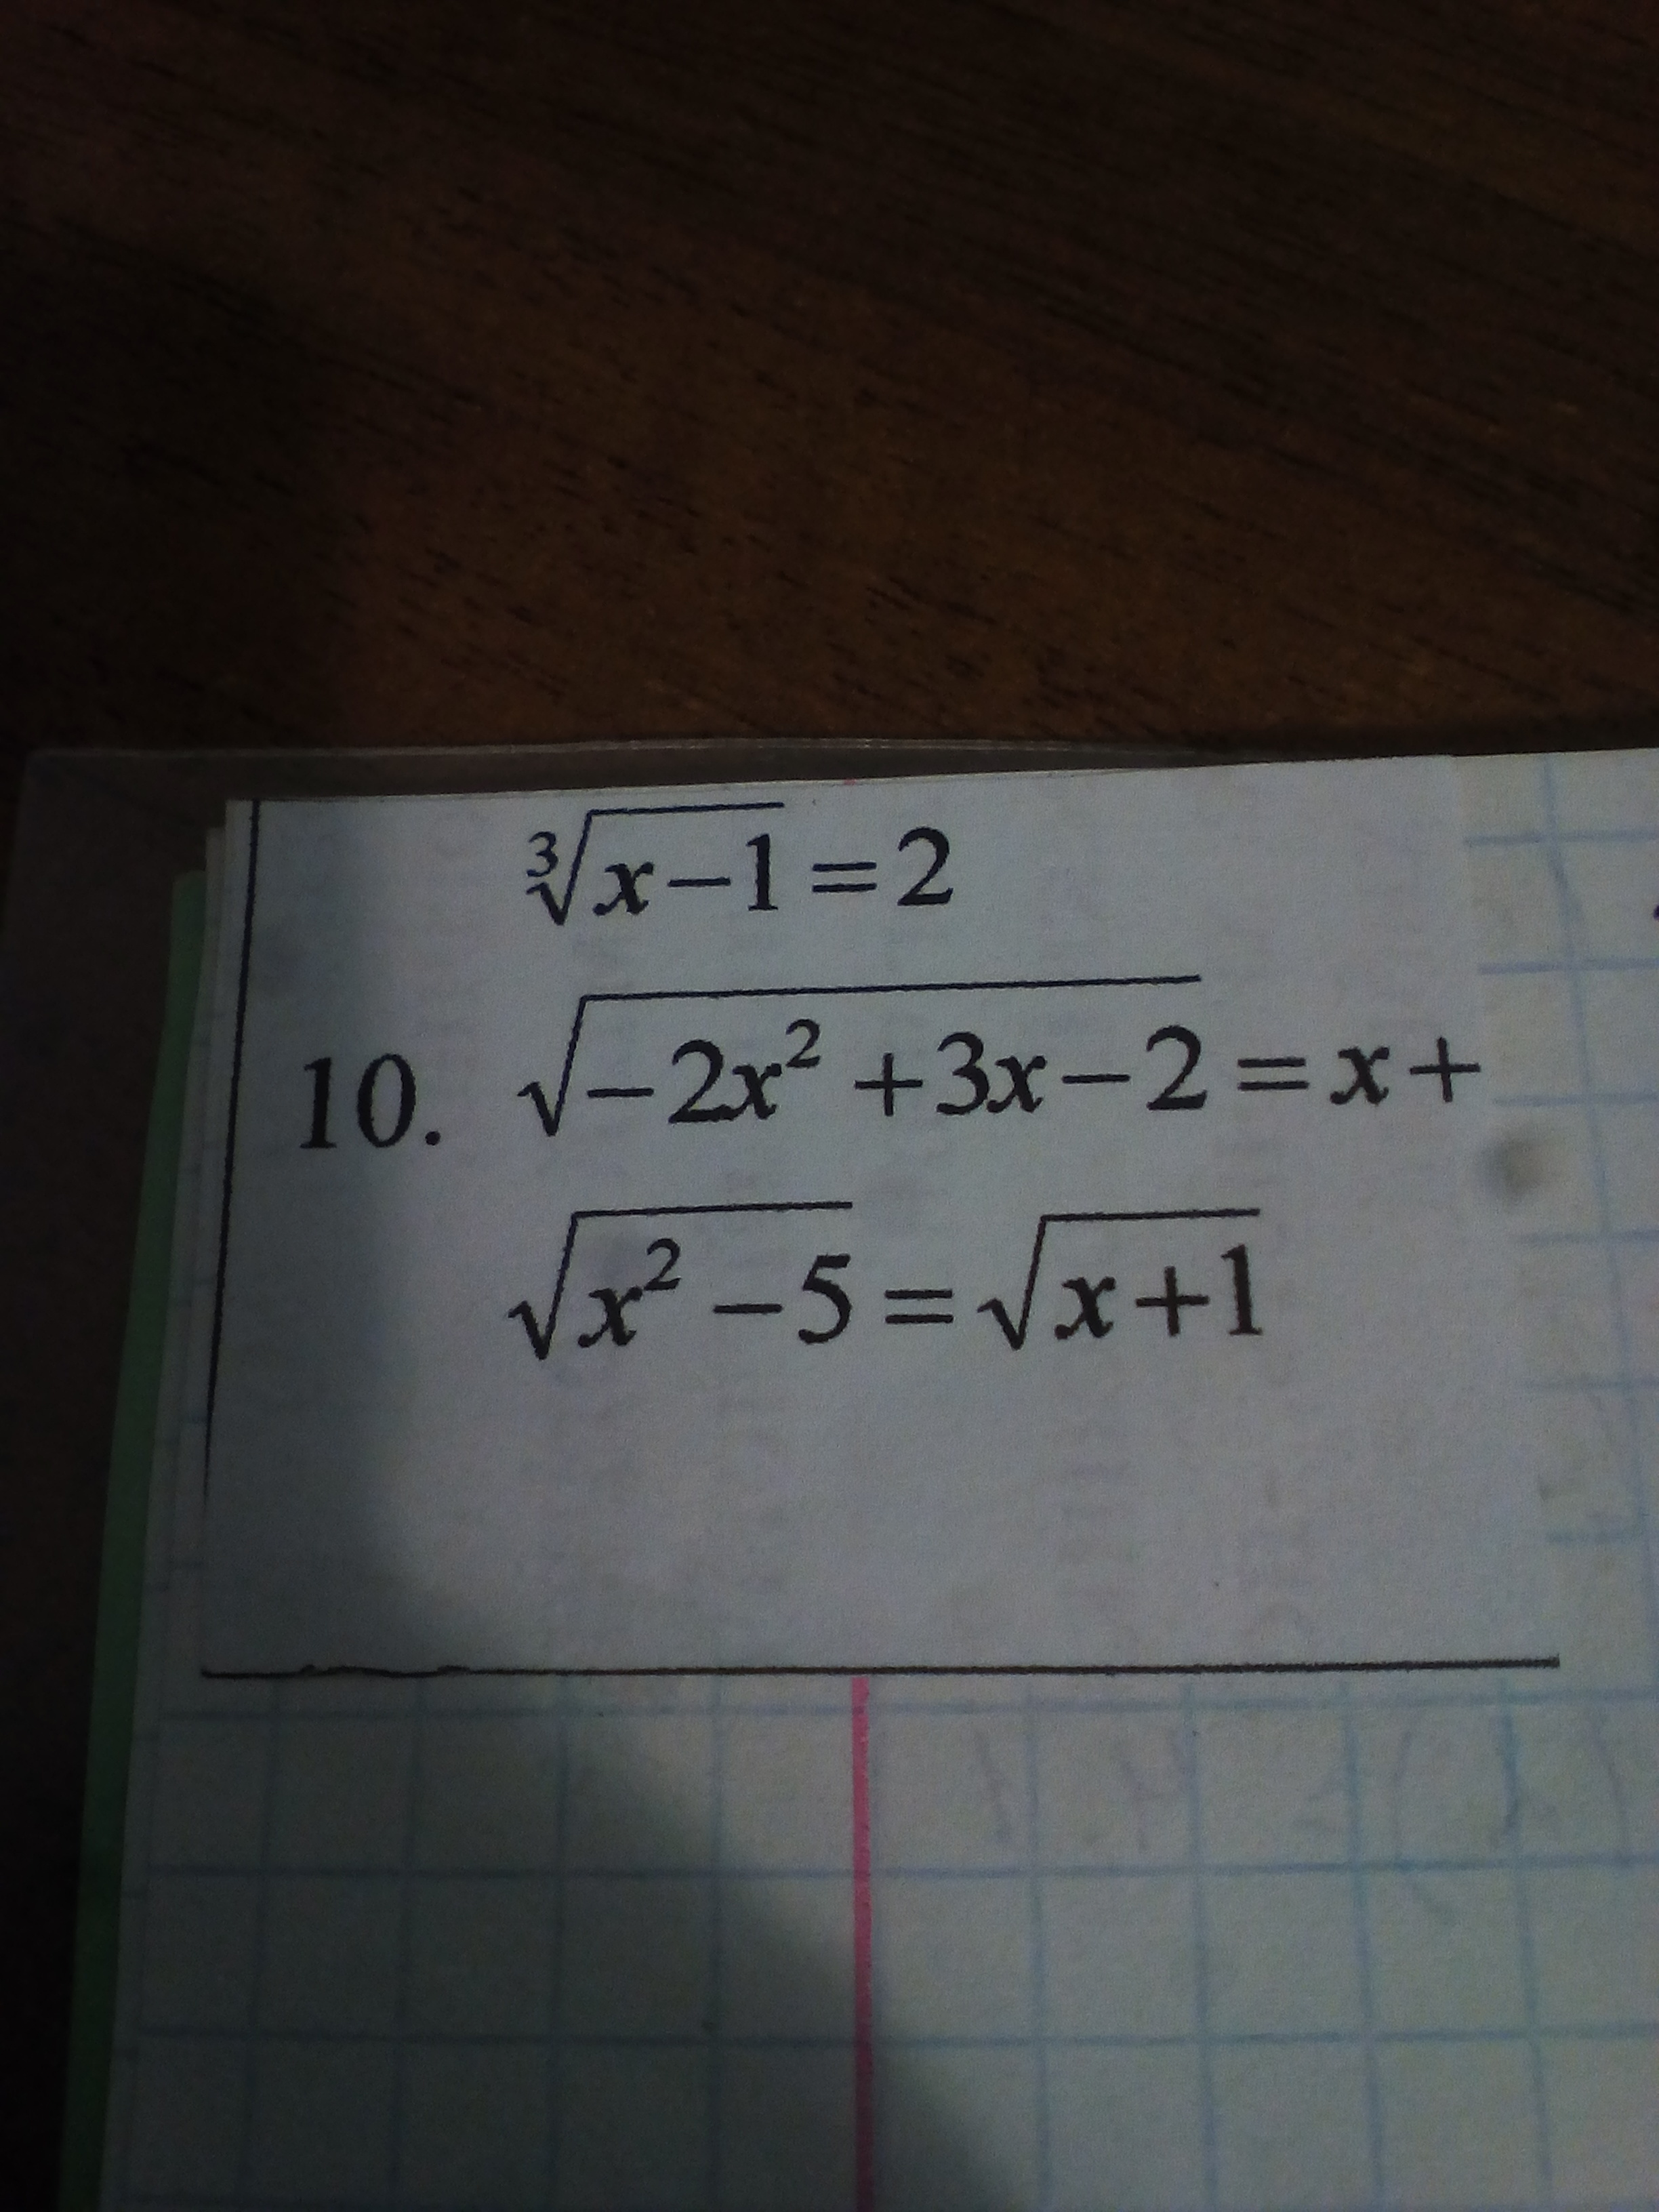 ∛(x−1) = 2
10. √(−2x² + 3x − 2) = x +
√(x² − 5) = √(x + 1)